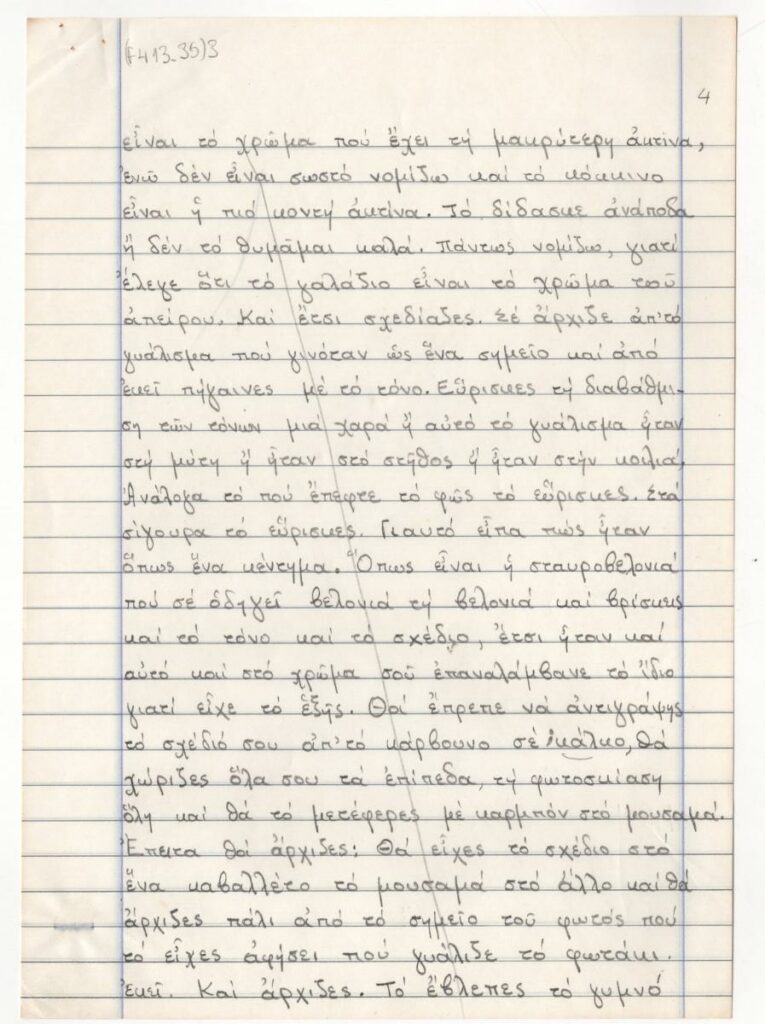 (F413-35)3
4
εἶναι τό χρῶμα πού ἔχει τή μακρύτερη ἀκτίνα,
ἐνῶ δέν εἶναι σωστό νομίζω καί τό κόκκινο
εἶναι ἡ πιό κοντή ἀκτίνα. Τό δίδασκε ἀνάποδα
ἤ δέν τό θυμᾶμαι καλά. Πάντως νομίζω, γιατί
ἔλεγε ὅτι τό γαλάζιο εἶναι τό χρῶμα τοῦ
ἀπείρου. Καί ἔτσι σχεδίαζες. Σέ ἄρχιζε ἀπ'τό
γυάλισμα πού γινόταν ὡς ἕνα σημεῖο καί ἀπό
ἐκεῖ πήγαινες μέ τό τόνο. Εὕρισκες τή διαβάθμι-
ση τῶν τόνων μιά χαρά ἤ αὐτό τό γυάλισμα ἦταν
στή μύτη ἤ ἦταν στό στῆθος ἤ ἦταν στήν κοιλιά,
Ἀνάλογα τό πού ἔπεφτε τό φῶς τό εὕρισκες. Στά
σίγουρα τό εὕρισκες. Γιαυτό εἶπα πώς ἦταν
ὅπως ἕνα κέντημα. Ὅπως εἶναι ἡ σταυροβελονιά
πού σέ ὁδηγεῖ βελονιά τή βελονιά καί βρίσκεις
καί τό τόνο καί τό σχέδιο, ἔτσι ἦταν καί
αὐτό καί στό χρῶμα σοῦ ἐπαναλάμβανε τό ἴδιο
γιατί εἶχε τό ἑξῆς. Θά ἔπρεπε νά ἀντιγράψης
τό σχέδιό σου ἀπ'τό κάρβουνο σέ κάλκο, θά
χώριζες ὅλα σου τά ἐπίπεδα, τή φωτοσκίαση
ὅλη καί θά τό μετέφερες μέ καρμπόν στό μουσαμά.
Ἔπειτα θά ἄρχιζες; Θά εἶχες τό σχέδιο στό
ἕνα καβαλλέτο τό μουσαμά στό ἄλλο καί θά
ἄρχιζες πάλι ἀπό τό σημεῖο τοῦ φωτός πού
τό εἶχες ἀφήσει πού γυάλιζε τό φωτάκι.
ἐκεῖ. Καί ἄρχιζες. Τό ἔβλεπες τό γυμνό